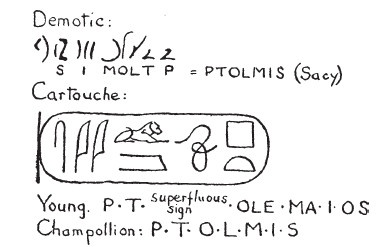 Demotic:
S I MOLT P = PTOLMIS (Sacy)
Cartouche:
Young. P·T· superfluous sign ·OLE·MA·I·OS
Champollion: P·T·O·L·M·I·S